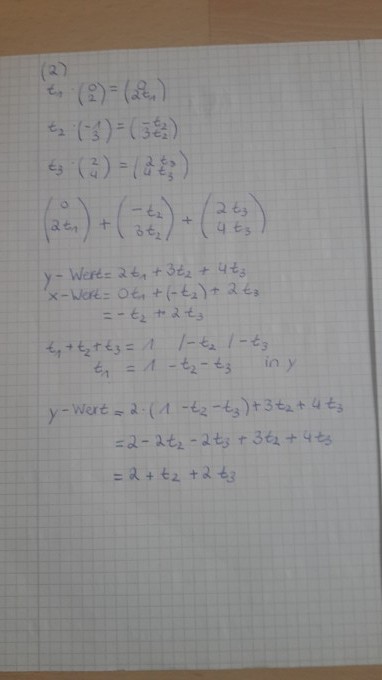 (2)
t₁ · (0 2) = (0 2t₁)
t₂ · (-1 3) = (-t₂ 3t₂)
t₃ · (2 4) = (2t₃ 4t₃)
(0 2t₁) + (-t₂ 3t₂) + (2t₃ 4t₃)
y-Wert = 2t₁ + 3t₂ + 4t₃
x-Wert = 0t₁ + (-t₂) + 2t₃
= -t₂ + 2t₃
t₁ + t₂ + t₃ = 1 /-t₂ /-t₃
t₁ = 1 - t₂ - t₃ in y
y-Wert = 2 · (1 - t₂ - t₃) + 3t₂ + 4t₃
= 2 - 2t₂ - 2t₃ + 3t₂ + 4t₃
= 2 + t₂ + 2t₃